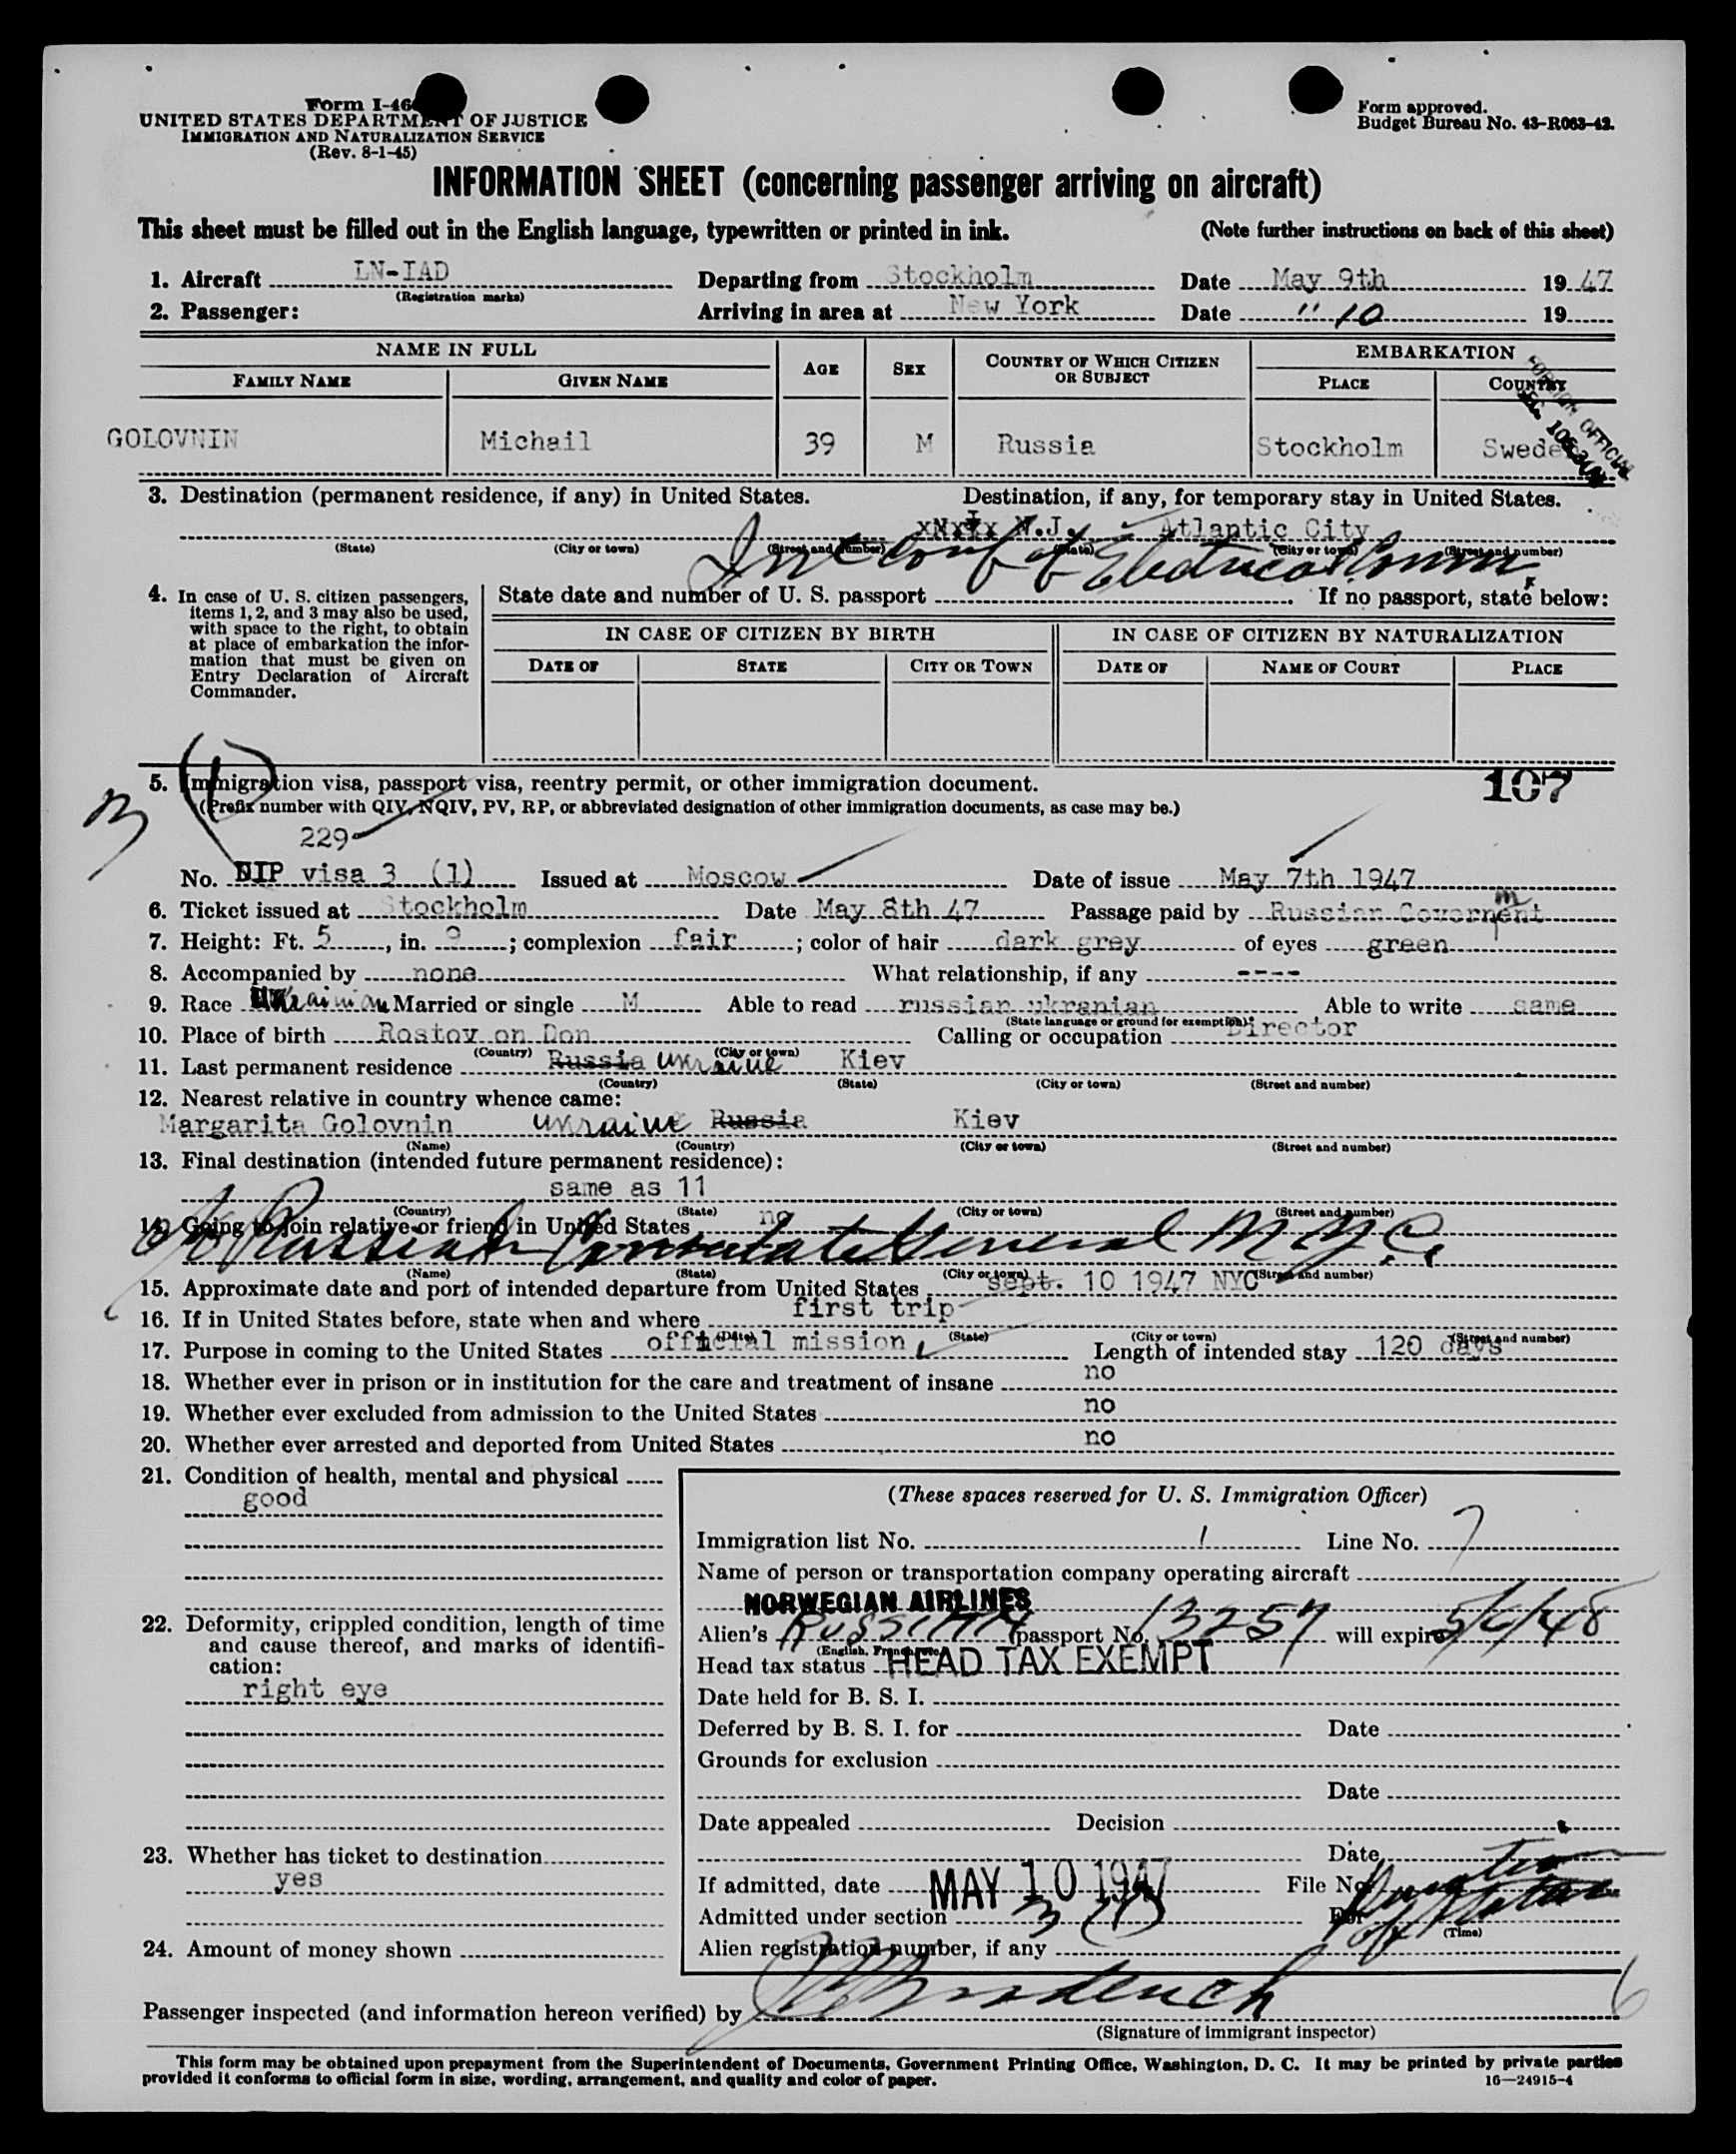 Form I-46
UNITED STATES DEPARTMENT OF JUSTICE
IMMIGRATION AND NATURALIZATION SERVICE
(Rev. 8-1-45)
Form approved.
Budget Bureau No. 43-R063-42.
INFORMATION SHEET (concerning passenger arriving on aircraft)
This sheet must be filled out in the English language, typewritten or printed in ink. (Note further instructions on back of this sheet)
1. Aircraft LN-IAD Departing from Stockholm Date May 9th 1947
(Registration marks)
2. Passenger: Arriving in area at New York Date " 10 19
NAME IN FULL AGE SEX COUNTRY OF WHICH CITIZEN OR SUBJECT EMBARKATION
FAMILY NAME GIVEN NAME PLACE COUNTRY
FOREIGN OFFICIAL
GOLOVNIN Michail 39 M Russia Stockholm Swede
3. Destination (permanent residence, if any) in United States. Destination, if any, for temporary stay in United States.
N.J. - Atlantic City
(State) (City or town) (Street and number) (State) (City or town) (Street and number)
Int Conf of Electrical Comm
4. In case of U. S. citizen passengers, items 1, 2, and 3 may also be used, with space to the right, to obtain at place of embarkation the information that must be given on Entry Declaration of Aircraft Commander.
State date and number of U. S. passport . If no passport, state below:
IN CASE OF CITIZEN BY BIRTH IN CASE OF CITIZEN BY NATURALIZATION
DATE OF STATE CITY OR TOWN DATE OF NAME OF COURT PLACE
3 (1)
5. Immigration visa, passport visa, reentry permit, or other immigration document. 107
(Prefix number with QIV, NQIV, PV, RP, or abbreviated designation of other immigration documents, as case may be.)
229
No. DIP visa 3 (1) Issued at Moscow Date of issue May 7th 1947
6. Ticket issued at Stockholm Date May 8th 47 Passage paid by Russian Government
7. Height: Ft. 5, in. 9; complexion fair; color of hair dark grey of eyes green
8. Accompanied by none What relationship, if any ----
9. Race Ukrainian Married or single M Able to read russian ukranian Able to write same
(State language or ground for exemption)
10. Place of birth Rostov on Don Calling or occupation Director
(Country) (City or town)
11. Last permanent residence Russia Ukraine Kiev
(Country) (State) (City or town) (Street and number)
12. Nearest relative in country whence came:
Margarita Golovnin Ukraine Russia Kiev
(Name) (Country) (City or town) (Street and number)
13. Final destination (intended future permanent residence):
same as 11
(Country) (State) (City or town) (Street and number)
14. Going to join relative or friend in United States no
Russian Consulate General N.Y.C.
(Name) (State) (City or town) (Street and number)
15. Approximate date and port of intended departure from United States sept. 10 1947 NYC
16. If in United States before, state when and where first trip
(Date) (State) (City or town) (Street and number)
17. Purpose in coming to the United States official mission Length of intended stay 120 days
18. Whether ever in prison or in institution for the care and treatment of insane no
19. Whether ever excluded from admission to the United States no
20. Whether ever arrested and deported from United States no
21. Condition of health, mental and physical
good
22. Deformity, crippled condition, length of time and cause thereof, and marks of identification:
right eye
23. Whether has ticket to destination
yes
24. Amount of money shown
(These spaces reserved for U. S. Immigration Officer)
Immigration list No. 1 Line No. 7
Name of person or transportation company operating aircraft
NORWEGIAN AIRLINES
Alien's RUSSIAN passport No. 13257 will expire 5/6/48
(English, French, etc.)
Head tax status HEAD TAX EXEMPT
Date held for B. S. I.
Deferred by B. S. I. for Date
Grounds for exclusion
Date
Date appealed Decision
Date
If admitted, date MAY 10 1947 File No.
Admitted under section 3 (1) For Duration of Status
(Time)
Alien registration number, if any
6
Passenger inspected (and information hereon verified) by
(Signature of immigrant inspector)
This form may be obtained upon prepayment from the Superintendent of Documents, Government Printing Office, Washington, D. C. It may be printed by private parties
provided it conforms to official form in size, wording, arrangement, and quality and color of paper. 16—24915-4